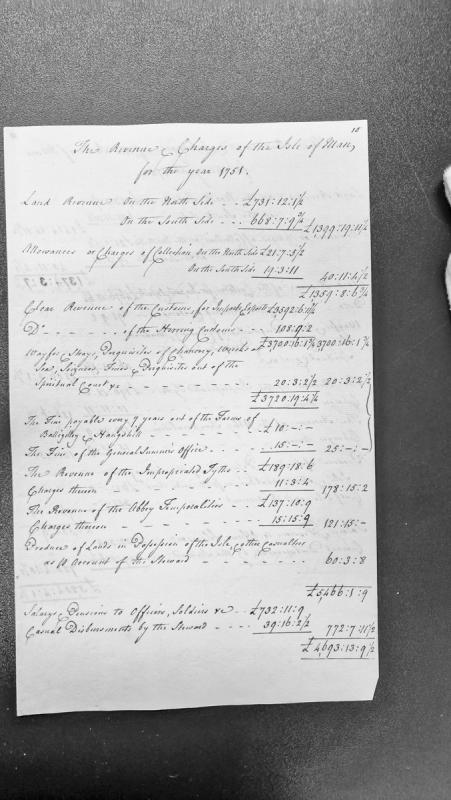 18
The Revenue & Charges of the Isle of Man,
for the year 1751.
Land Revenue On the North Side . . £731:12:1½
On the South Side . . . 668:7:9¾ £1399:19:11¼
Allowances or Charges of Collection, On the North Side £21:7:5½
On the South Side 19:3:11 40:11:4½
£1359:8:6¾
Clear Revenue of the Customs, for Imports & Exports £3592:6:11¾
Do - - - - - of the Herring Customs - - - 108:9:2
£3700:16:1¾ 3,700:16:1¾
Wayfs & Strays, Perquisites of Chancery, Wrecks at
Sea, Seizures, Fines & Perquisites out of the
Spiritual Court &c - - - - - - - - - 20:3:2½ 20:3:2½
£3720:19:4¼
The Fine payable every 7 years out of the Farms of
Ballygilley & Hangohill - - - - - - £10:-:-
The Fine of the General Sumner Office . . . . 15:-:- 25:-:-
The Revenue of the Impropriated Tyths . . £189:18:6
Charges thereon - - - - - - - - 11:3:4 178:15:2
The Revenue of the Abby Temporalities . . £137:10:9
Charges thereon - - - - - - - - 15:15:9 121:15:-
Produce of Lands in Possession of the Isle, & other Casualties
as P Account of the Steward - - - - - - 60:3:8
£5,466:1:9
Salarys, Pensions to Officers, Soldiers &c - £732:11:9
Casual Disbursments by the Steward - - - - 39:16:2½ 772:7:11½
£4,693:13:9½